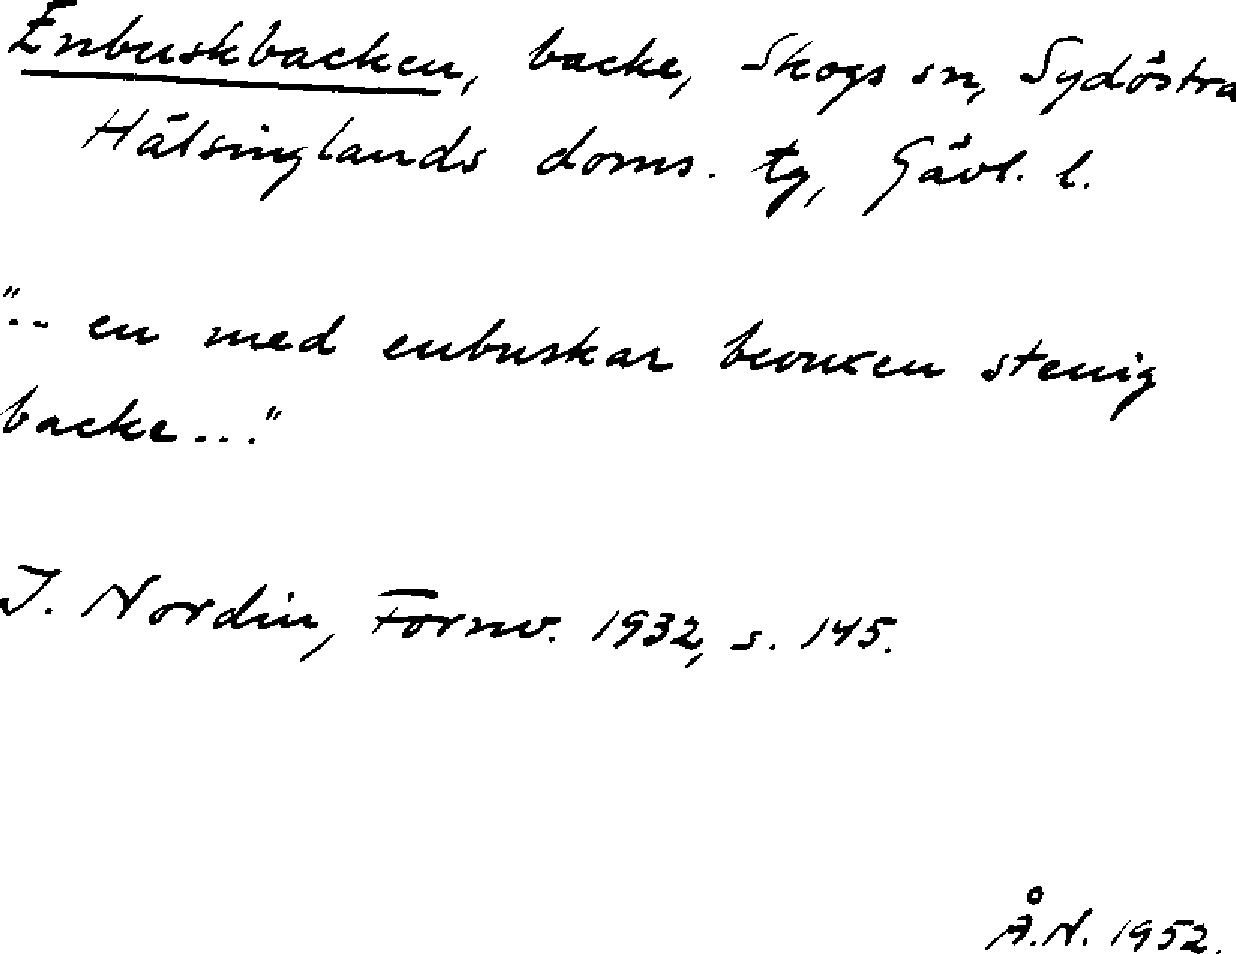 Enbuskbacken, backe, Skogs sn, Sydöstra
Hälsinglands doms. tg, Gävl. l.
"... en med enbuskar bevuxen stenig
backe..."
J. Nordin, Fornv. 1932, s. 145.
Å.N. 1952.